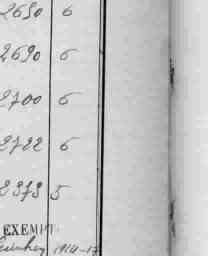 2650 6
2690 6
2700 6
2722 6
2373 5
EXEMPT
1914-17